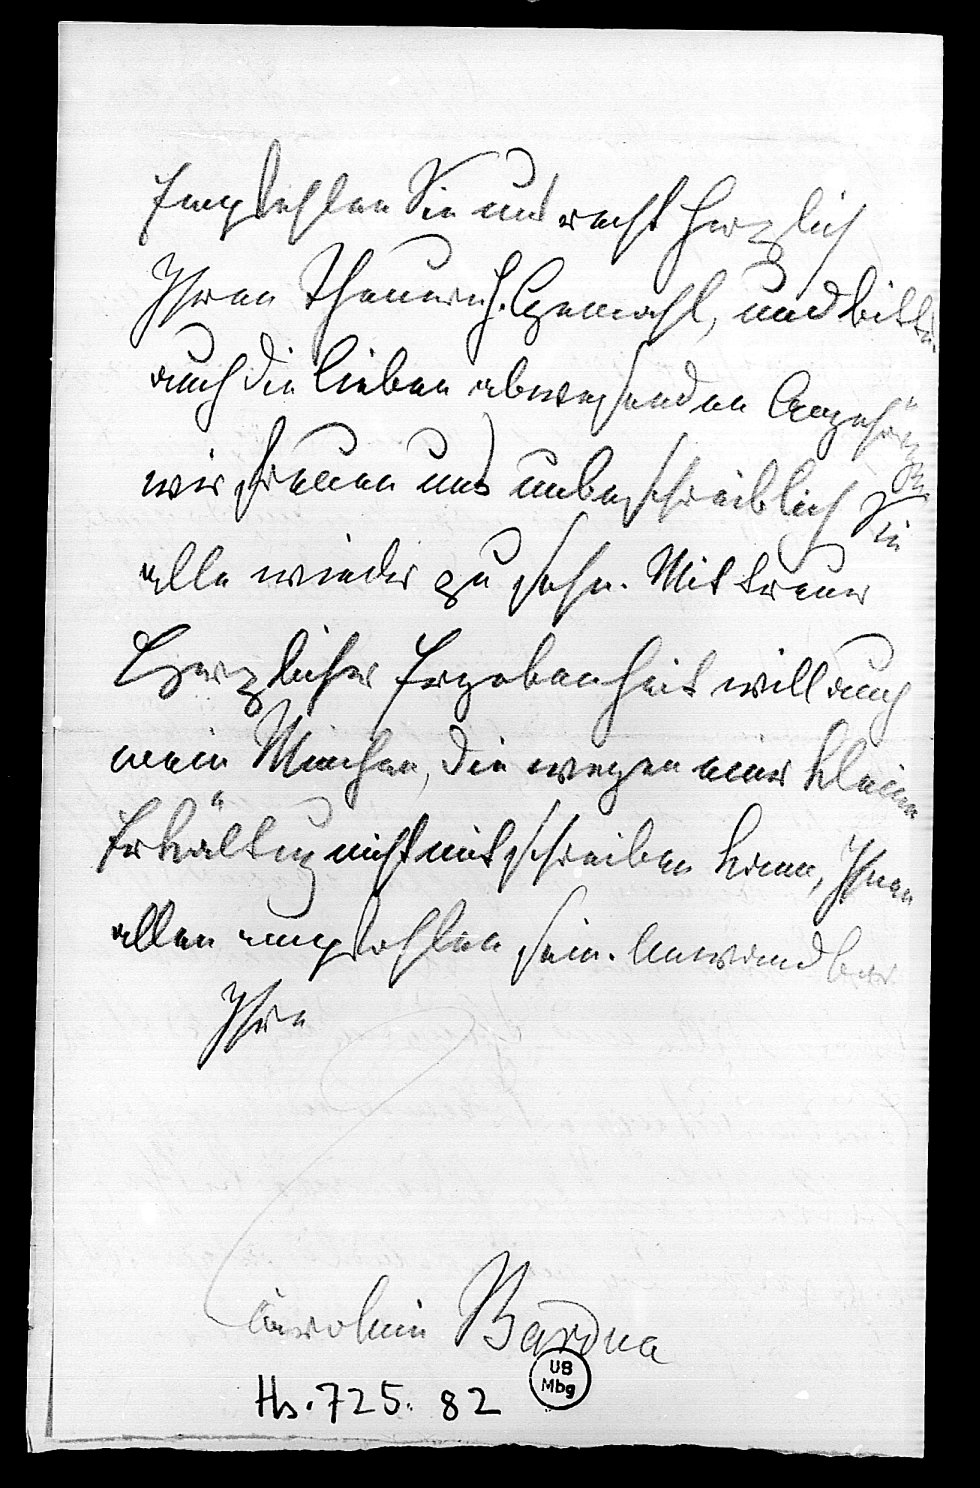 Empfehlen Sie uns recht herzlich
Ihren theuern H. Gemahl, und bitte
auch die lieben abwesenden Angehörigen
wir freuen uns unbeschreiblich Sie
alle wieder zu sehn. Mit treuer
Herzlicher Ergebenheit will auch
mein Minchen, die wegen einer kleinen
Erkältung nicht mit schreiben kann, Ihnen
allen empfohlen sein. Unwandbar
Ihre
Caroline Bardua
Hs. 725. 82
UB
Mbg